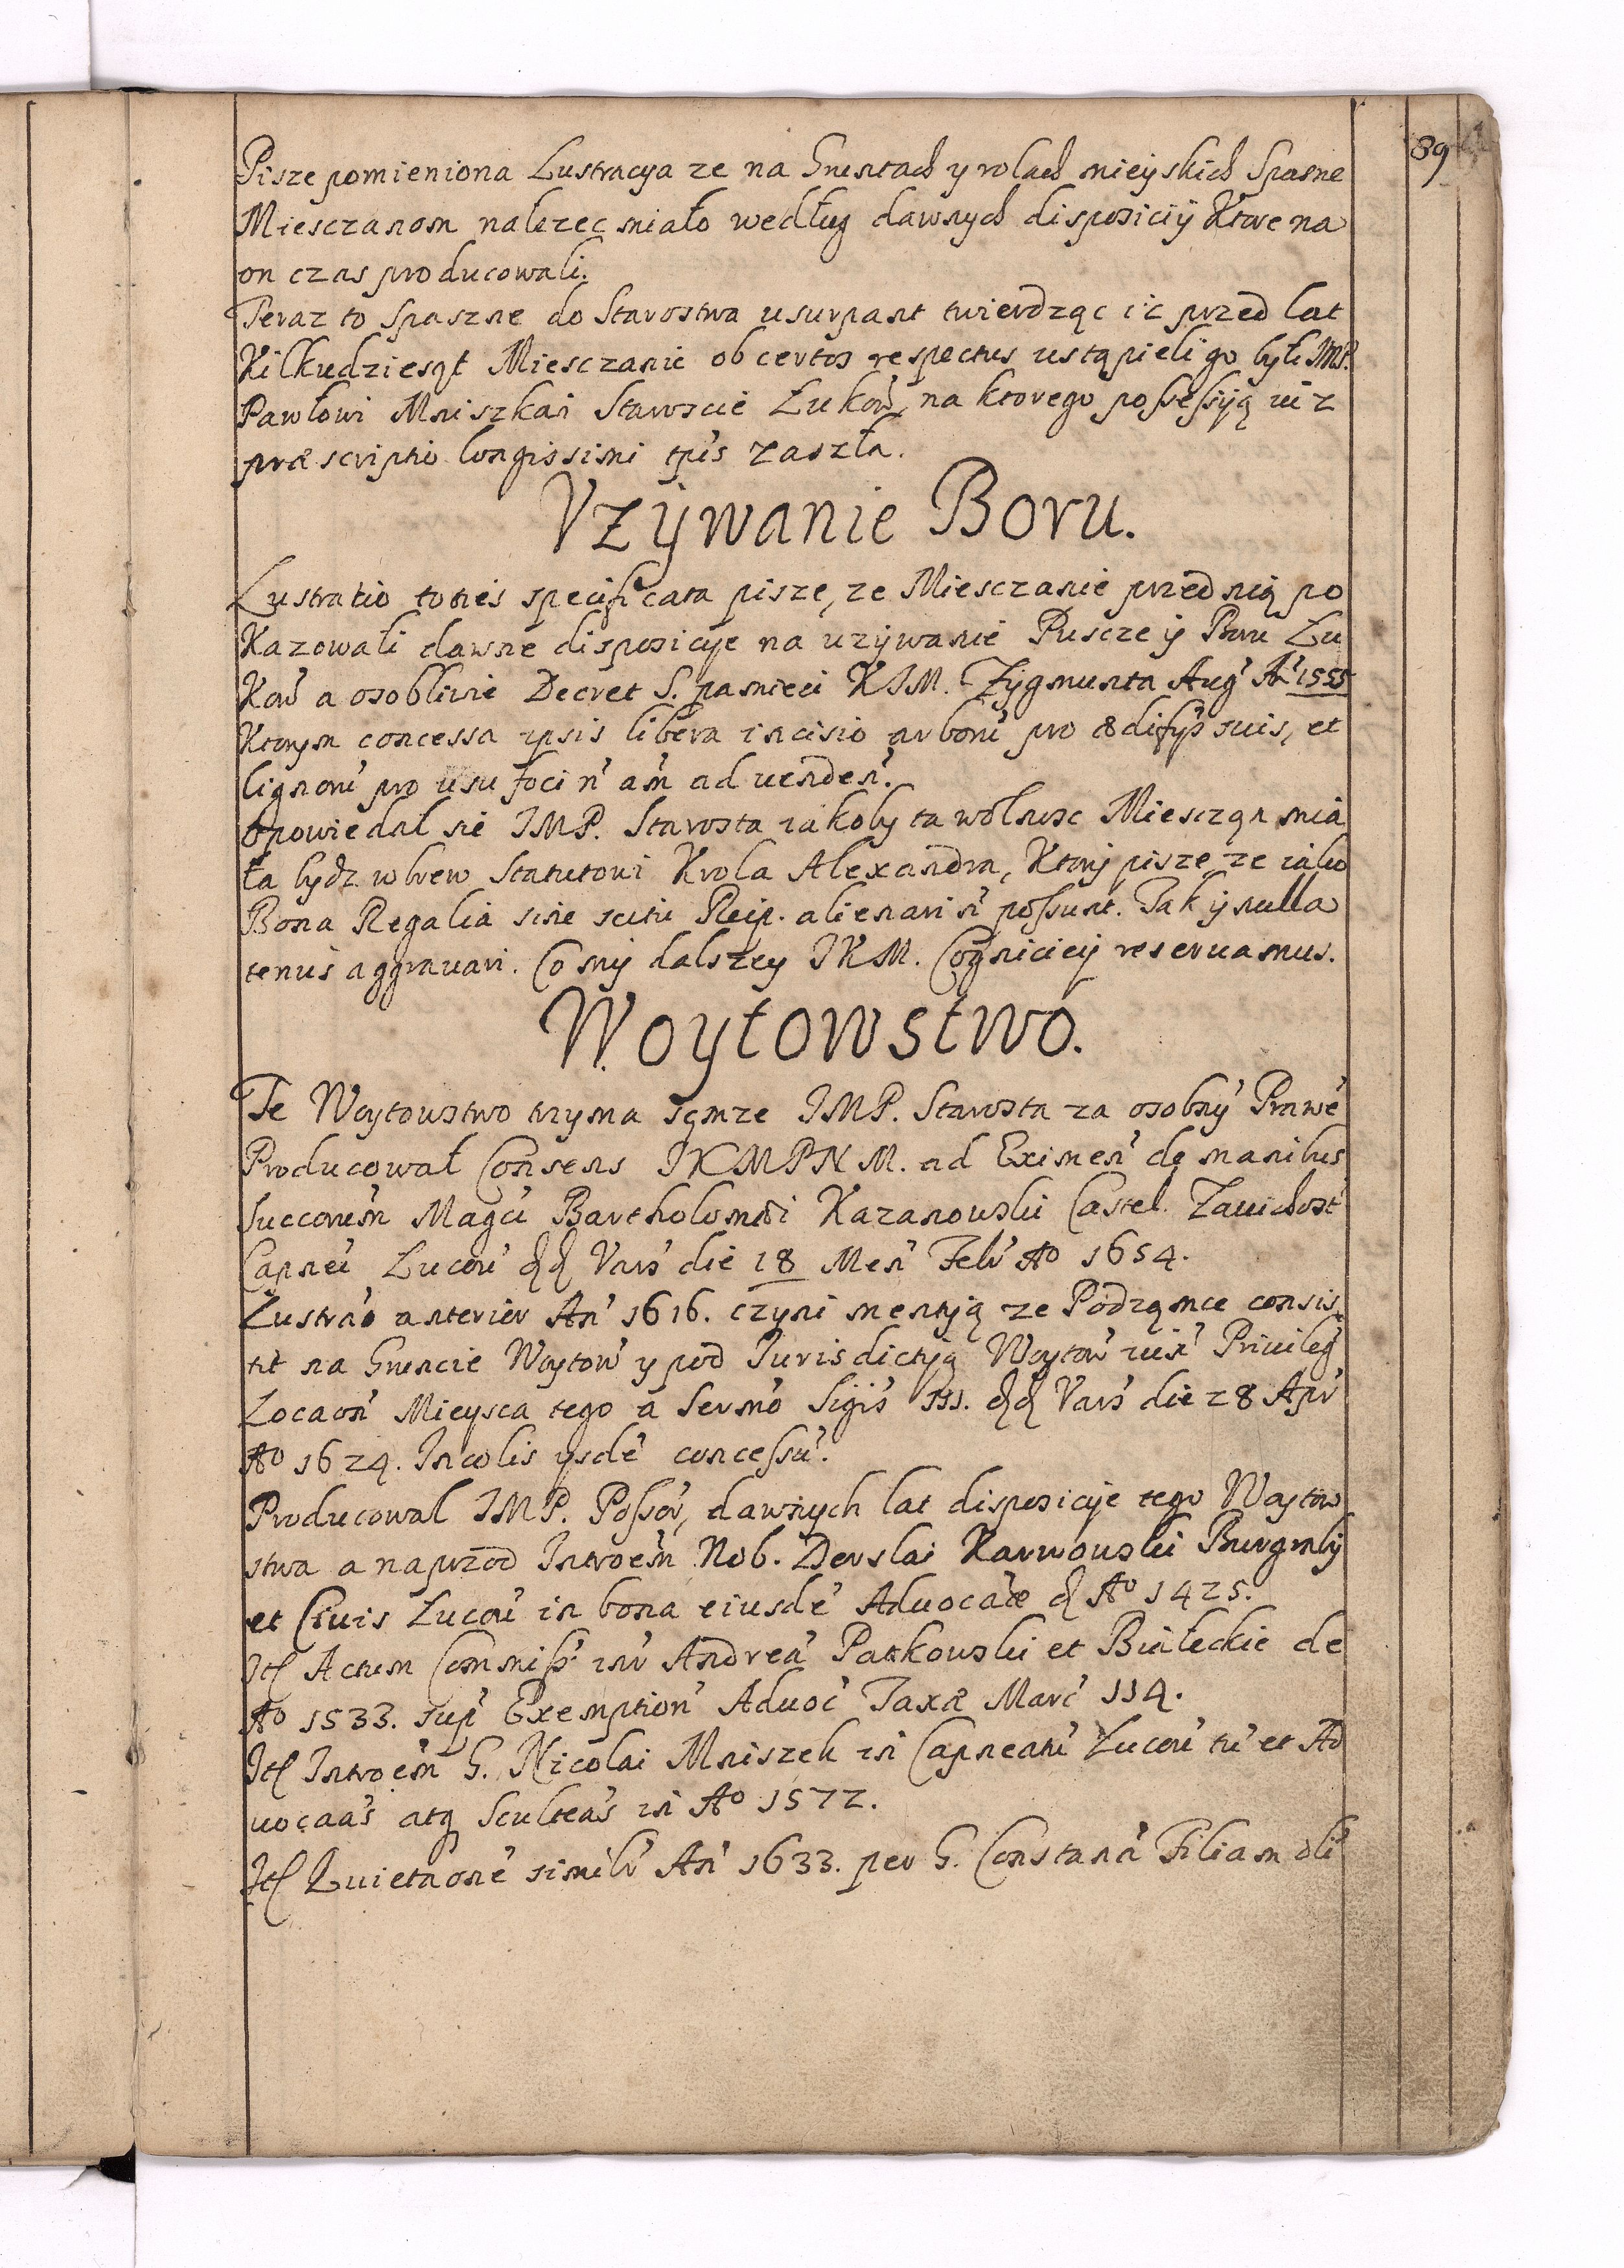 89
Pisze pomieniona Lustracya ze na Gruntach y rolach mieyskich Spasne
Miesczanom nalezec miało według dawnych disposiciÿ Ktore na
on czas producowali.
Teraz to Spaszne do Starostwa usurpant twierdząc iz przed lat
Kilkudziesiąt Miesczanie ob certos respectus ustąpieli go byli JMP.
Pawłowi Mniszkai Staroscie Łukow, na ktorego possessyą iuz
præscriptio longissimi tpis zaszła.
Vzÿwanie Boru.
Lustratio toties specificata pisze, ze Miesczanie przed nią po
Kazowali dawne disposicye na uzÿwanie Puscze ÿ Boru Łu
Kow a osobliwie Decret S. pamieci KJM. Zygmunta Aug An 1555
Ktorym concessa ipsis libera incisio arboru pro ædifijs suis, et
lignoru pro usu foci n am ad venden.
Opowiedal sie JMP. Starosta iakoby ta wolnosc Miesczan mia
ła bydz wbrew Statutowi Krola Alexandra, Ktory pisze, ze iako
Bona Regalia sine scitu Reip. alienari n possunt. Tak ÿ nulla
tenus aggravari. Co my dalszey JKM. Cogniciey reservamus.
Woytowstwo.
Te Woytowstwo trzyma tęmze JMP. Starosta za osobny Prawe
Producował Consens JKMPNM. ad Eximen de manibus
Succorum Magci Bartholomæi Kazanowski Castel. Zawichost
Capnei Lucou dd Vars die 18 Men Febr Ao 1654.
Lustrao anterior An 1616. czyni mentyą ze Podzamce consis
tit na Gruncie Woytow y pod Jurisdictyą Woytow iux Privileg
Locaon Mieysca tego a Sermo Sigis III. dd Vars die 28 Apr
Ao 1624. Incolis ysde concessu.
Producowal JMP. Possor, dawnych lat disposicye tego Woytow
stwa a naprzod Introem Nob. Derslai Karwowski Burgraby
et Civis Lucou in bona eiusde Advocaæ d Ao 1425.
Itt Actum Commiss inr Andrea Patkowski et Białeckie de
Ao 1533. sup Exemption Advoc Taxæ Marc 114.
Itt Introem G. Nicolai Mniszek in Capneatu Lucou tu et Ad
vocaas atq Sculteas in Ao 1572.
Itt Quietaone simile An 1633. per G. Constana Filiam oli